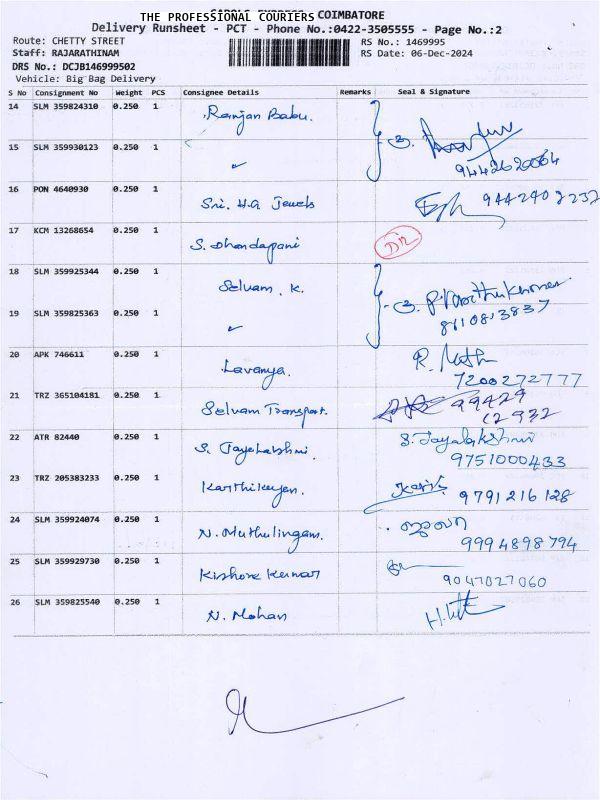 THE PROFESSIONAL COURIERS COIMBATORE
Delivery Runsheet - PCT - Phone No.:0422-3505555 - Page No.:2
Route: CHETTY STREET
RS No.: 1469995
Staff: RAJARATHINAM
RS Date: 06-Dec-2024
DRS No.: DCJB146999502
Vehicle: Big Bag Delivery
S No Consignment No Weight PCS Consignee Details Remarks Seal & Signature
14 SLM 359824310 0.250 1 Ramjan Babu.
15 SLM 359930123 0.250 1
9442620064
16 PON 4640930 0.250 1 Sri. H.G Jewels 9442402232
17 KCM 13268654 0.250 1 S. Dhandapani
18 SLM 359925344 0.250 1 Selvam. K.
19 SLM 359825363 0.250 1
8110813837
20 APK 746611 0.250 1 Lavanya.
7200272777
21 TRZ 365104181 0.250 1 Selvam Transport. 99429
12932
22 ATR 82440 0.250 1 S. Jayalakshmi. S. Jayalakshmi
9751000433
23 TRZ 205383233 0.250 1 Karthikeyan. 9791216128
24 SLM 359924074 0.250 1 N. Muthulingam.
9994898794
25 SLM 359929730 0.250 1 Kishore Kumar
9047027060
26 SLM 359825540 0.250 1 N. Mohan